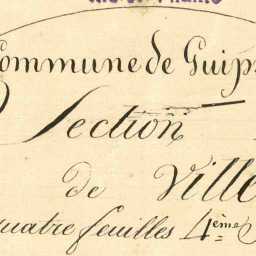 Commune de Guip
Section
de Ville
quatre feuilles 4ème